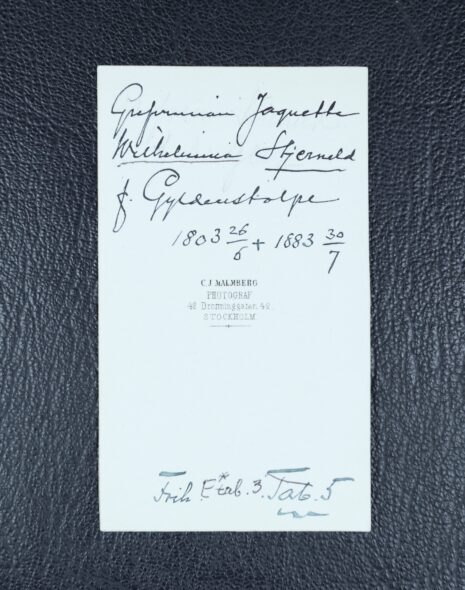 Grefvinnan Jaquette
Wilhelmina Stjerneld
f. Gyldenstolpe
1803 26/6 + 1883 30/7
C.J. MALMBERG
PHOTOGRAF
42 Drottninggatan 42.
STOCKHOLM
Frih. Tab. 3. Tab. 5